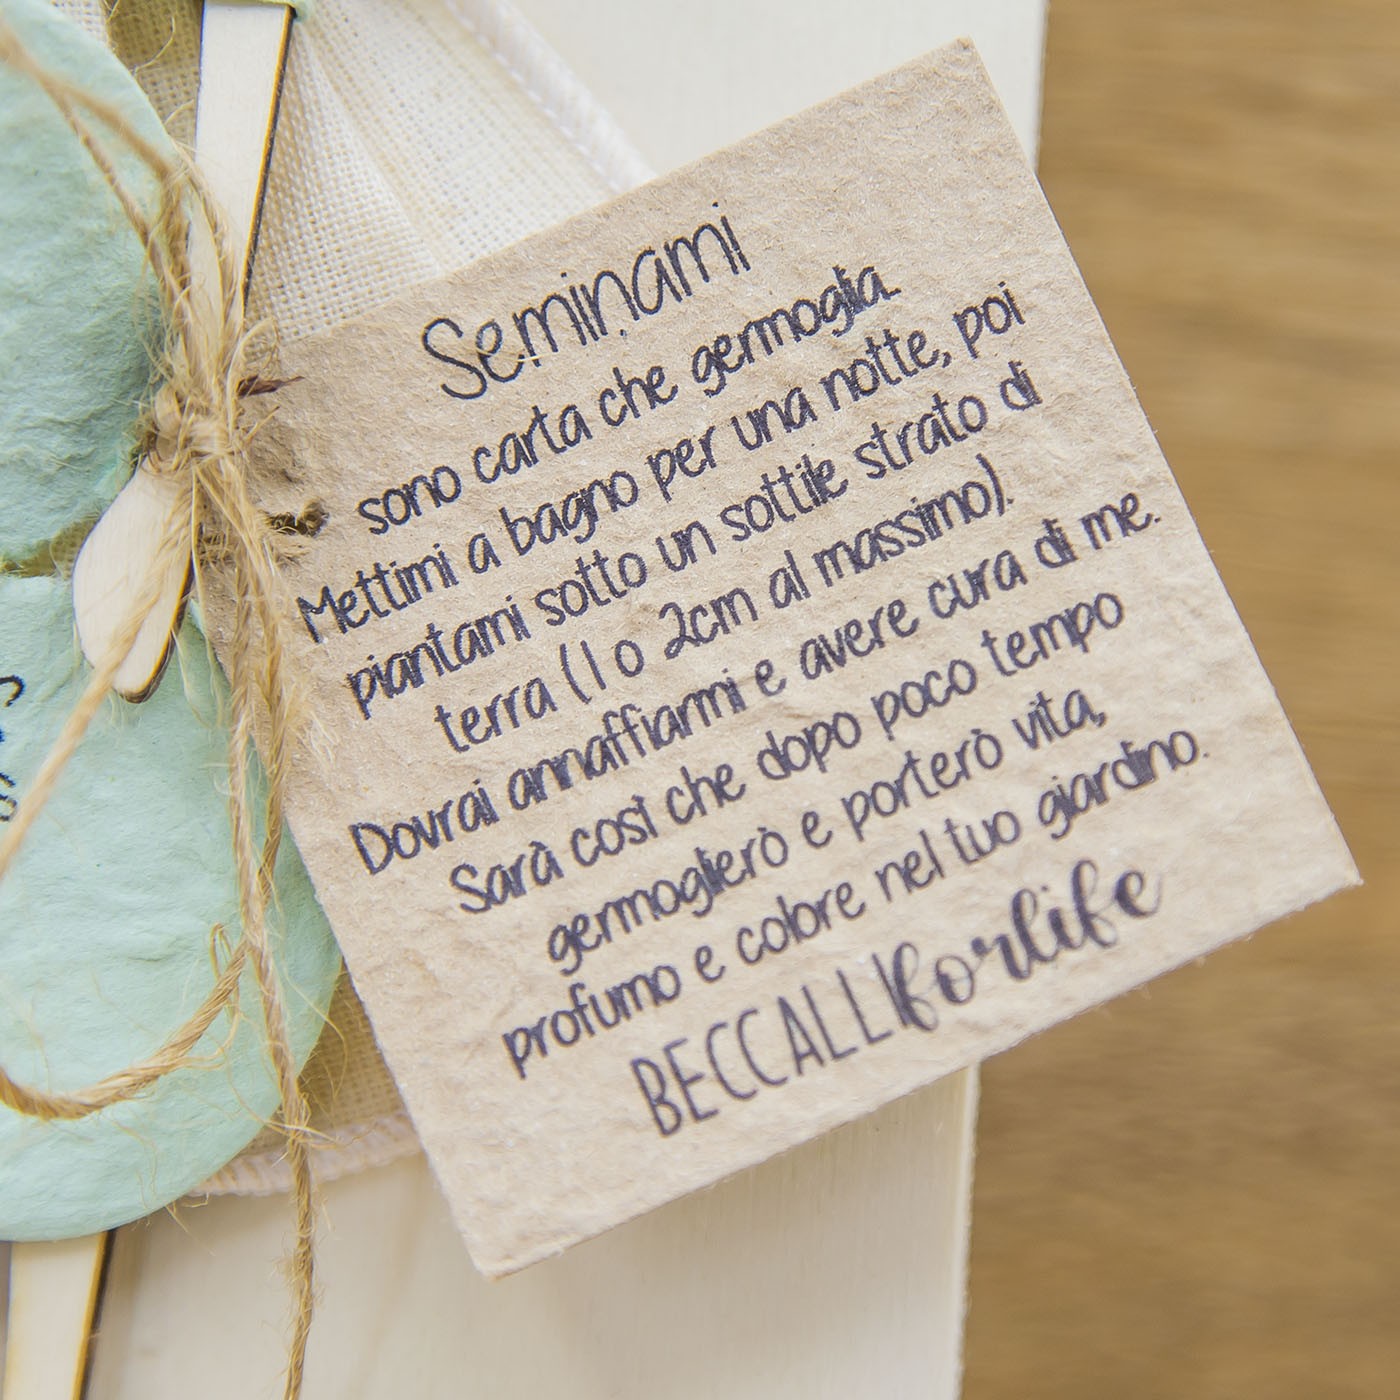 Seminami
sono carta che germoglia.
Mettimi a bagno per una notte, poi
piantami sotto un sottile strato di
terra (1 o 2cm al massimo).
Dovrai annaffiarmi e avere cura di me.
Sarà così che dopo poco tempo
germoglierò e porterò vita,
profumo e colore nel tuo giardino.
BECCALLIforlife